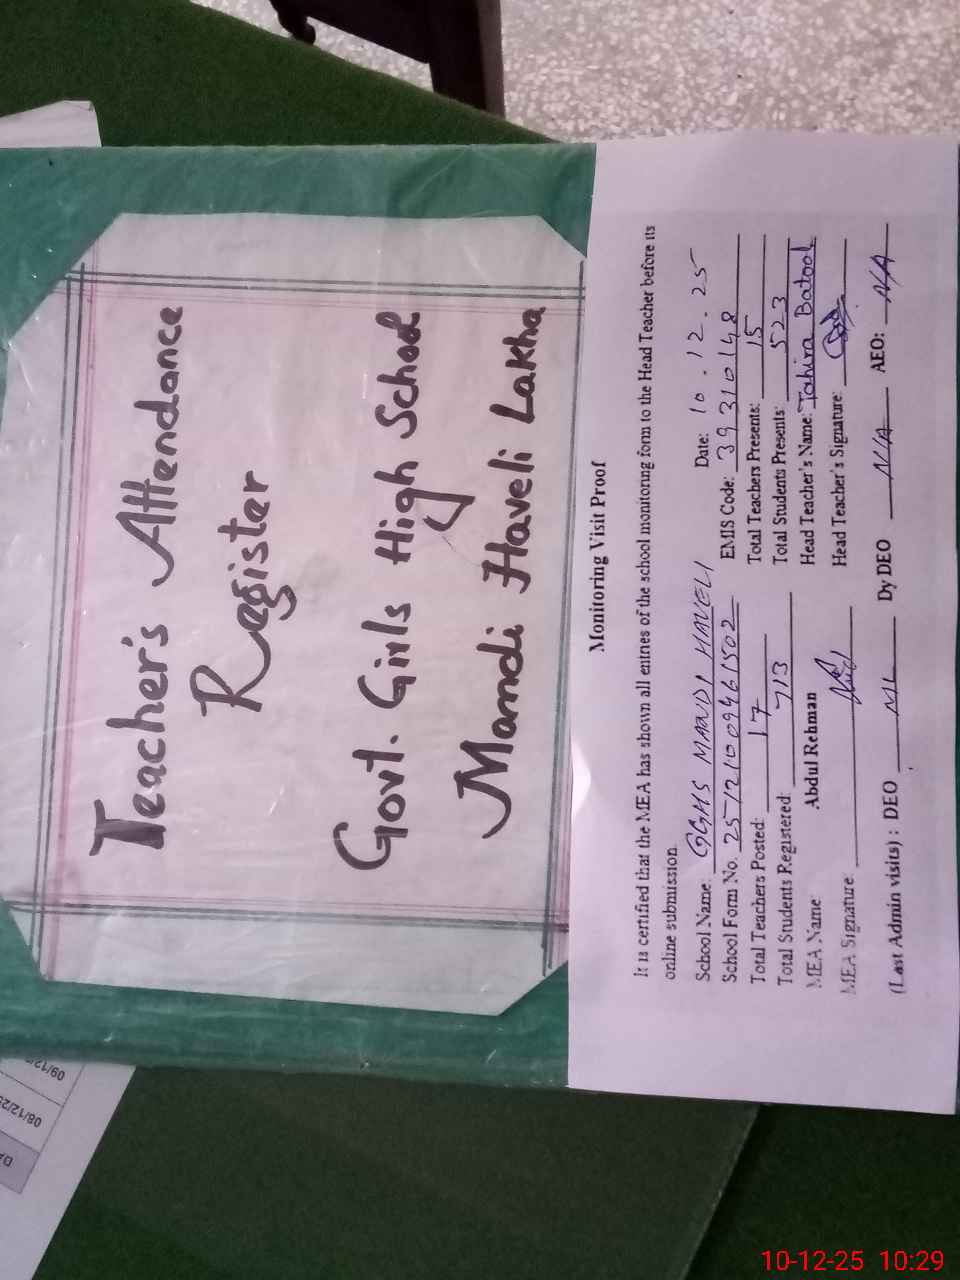 Teacher's Attendance
Register
Govt. Girls High School
Mandi Haveli Lakha
Monitoring Visit Proof
It is certified that the MEA has shown all entries of the school monitoring form to the Head Teacher before its
online submission
School Name: GGHS MANDI HAVELI Date: 10.12.25
School Form No. EMIS Code: 39310148
Total Teachers Posted: 17 Total Teachers Presents: 15
Total Students Registered: 713 Total Students Presents: 523
MEA Name Abdul Rehman Head Teacher's Name: Tahira Batool
MEA Signature Head Teacher's Signature:
(Last Admin visits) : DEO Dy DEO N/A AEO: N/A
09/12/
08/12/25
DA
10-12-25 10:29